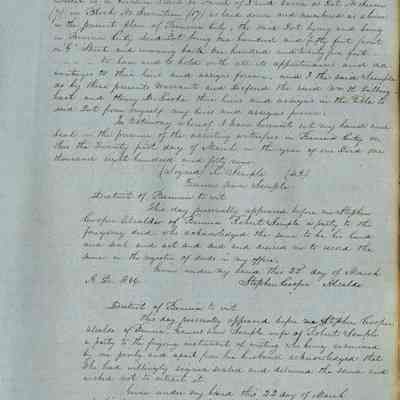 (7) in Block No Seventeen (17) as laid down and numbered as above
in the present plan of Benicia City, the said Lot lying and being
in Benicia City said Lot being one hundred and fifty feet front
on G Street and running back one hundred and twenty five feet
to have and to hold with all its appurtenances and
to their heirs and assigns forever, and I the said Semple
do by these presents Warrant and Defend the said Wm H.
and Henry D. Cooke their heirs and assigns in the Title to
said Lot from myself my heirs and assigns forever
In Testimony whereof I have hereunto set my hand and
seal in the presence of the assisting witnesses in Benicia City on
this the Twenty first day of March in the year of our Lord one
thousand eight hundred and forty nine
(Signed R. Semple (LS)
Frances Ann Semple
District of Benicia to wit
This day personally appeared before me Stephen
Cooper Alcalde of Benicia Robert Semple a party to the
foregoing deed who acknowledged the same to be his hand
and seal and act and deed and desired me to record the
same in the register of deeds in my office.
Given under my hand this 22d day of March
A. D. 1849. Stephen Cooper Alcalde
District of Benicia to wit
This day personally appeared before me Stephen Cooper
alcalde of Benicia Frances Ann Semple wife of Robert Semple
a party to the foregoing instrument of writing she being examined
by me privily and apart from her husband acknowledged that
She had willingly signed sealed and delivered the same and
wished not to retract it
Given under my hand this 22 day of March